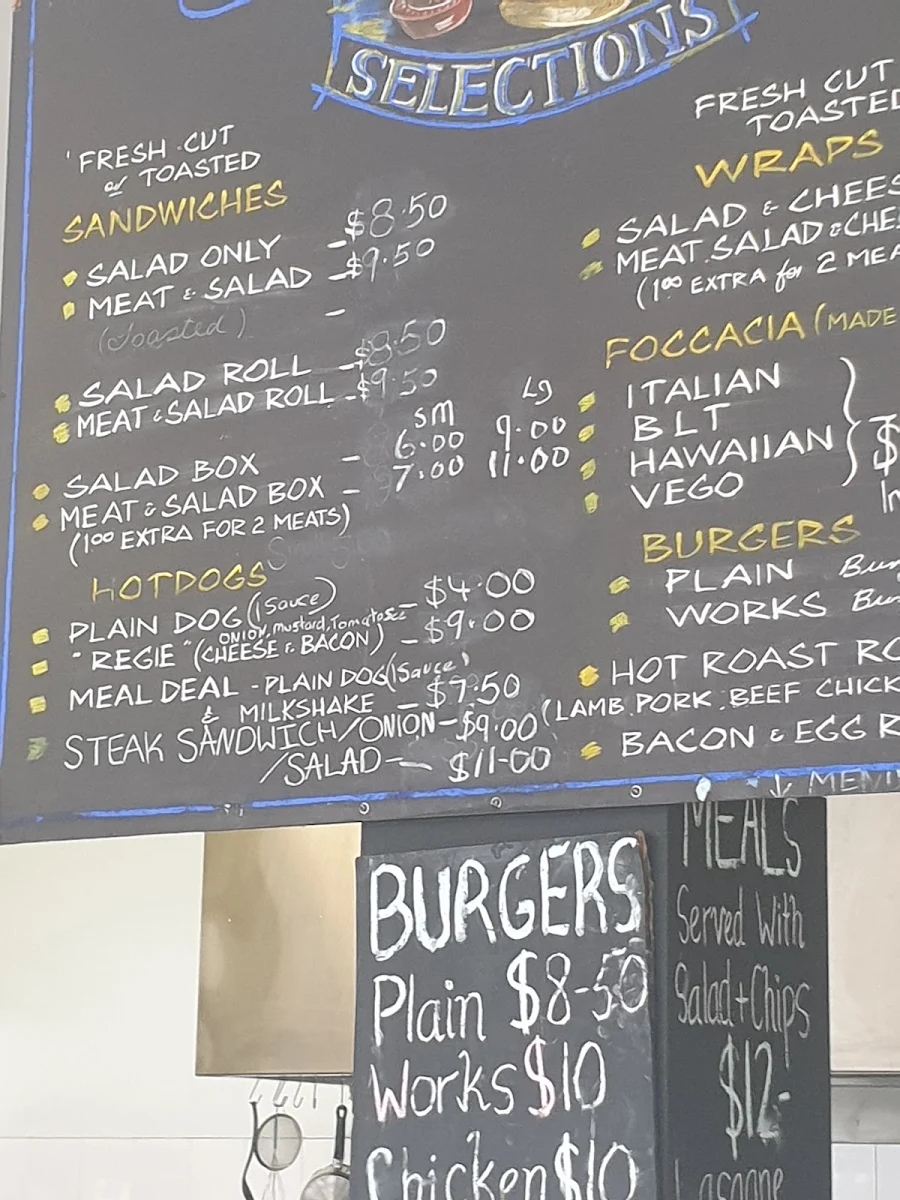 SELECTIONS
FRESH CUT
or TOASTED
SANDWICHES
SALAD ONLY - $8.50
MEAT & SALAD - $9.50
(Toasted) -
SALAD ROLL - $8.50
MEAT & SALAD ROLL - $9.50
sm Lg
SALAD BOX - 6.00 9.00
MEAT & SALAD BOX - 7.00 11.00
(100 EXTRA FOR 2 MEATS)
HOTDOGS
PLAIN DOG (1 Sauce) - $4.00
ONION, Mustard, Tomato
"REGIE" (CHEESE & BACON) - $9.00
MEAL DEAL - PLAIN DOG (1 Sauce)
& MILKSHAKE - $7.50
STEAK SANDWICH/ONION - $9.00
/SALAD - $11-00
FRESH CUT
TOASTED
WRAPS
SALAD & CHEES
MEAT. SALAD & CHE
(100 EXTRA for 2 MEA
FOCCACIA (MADE
ITALIAN
BLT
HAWAIIAN $
VEGO
BURGERS
PLAIN Bur
WORKS Bu
HOT ROAST RO
(LAMB. PORK. BEEF CHICK
BACON & EGG R
BURGERS
Plain $8-50
Works $10
Chicken $10
MEALS
Served With
Salad + Chips
$12-
Lasagne